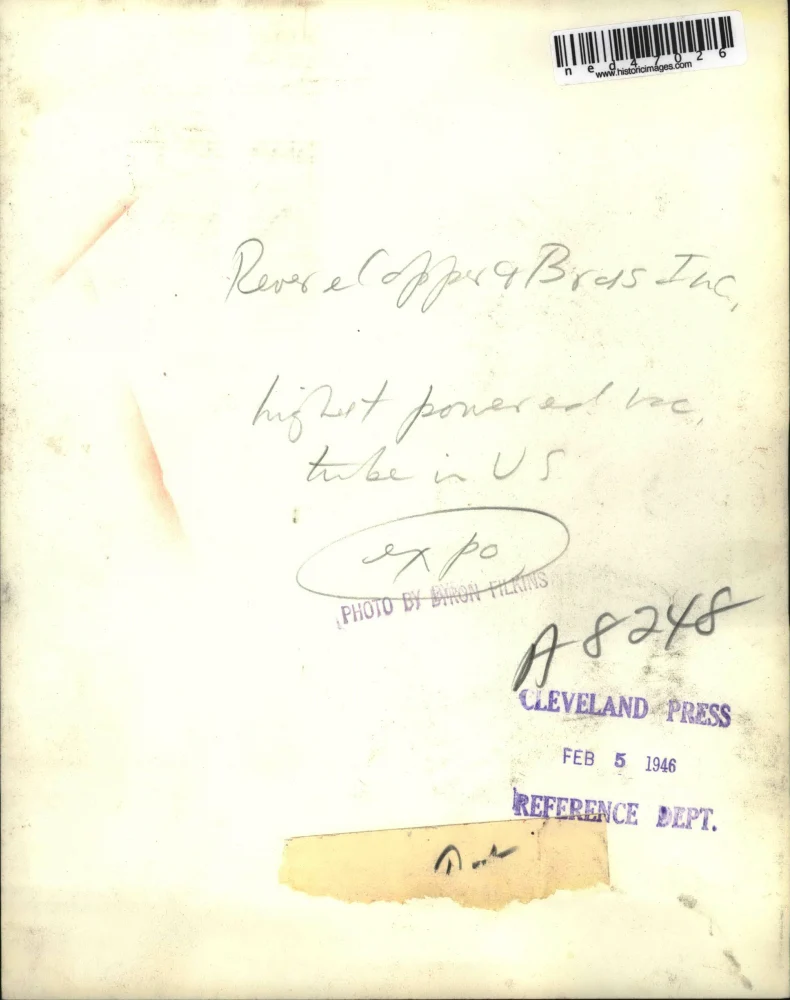 ned47026
www.historicimages.com
Revere Copper & Brass Inc,
highest powered vac,
tube in US
expo
PHOTO BY BYRON FILKINS
A8248
CLEVELAND PRESS
FEB 5 1946
REFERENCE DEPT.